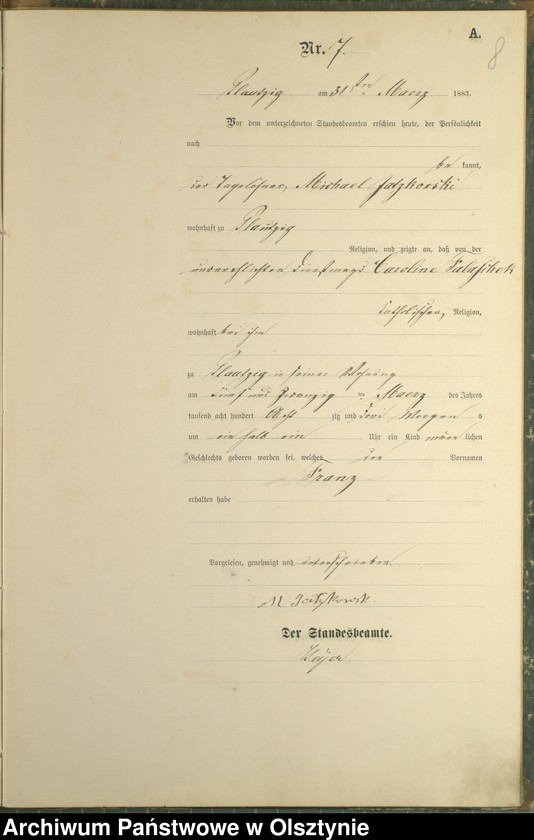 A.
8
Nr. 7.
Plautzig am 31ten Maerz 1883.
Vor dem unterzeichneten Standesbeamten erschien heute, der Persönlichkeit
nach
be kannt,
der Tagelöhner, Michael Jatzkowski
wohnhaft zu Plautzig
Religion, und zeigte an, daß von der
unverehlichten Dienstmagd Caroline
katholischer, Religion,
wohnhaft bei ihm
zu Plautzig in seiner Wohnung
am fünf und zwanzig ten Maerz des Jahres
tausend acht hundert Acht zig und drei Morgen s
um ein halb ein Uhr ein Kind männ lichen
Geschlechts geboren worden sei, welches den Vornamen
Franz
erhalten habe
Vorgelesen, genehmigt und unterschrieben.
M Jatzkowski
Der Standesbeamte.
Archiwum Państwowe w Olsztynie